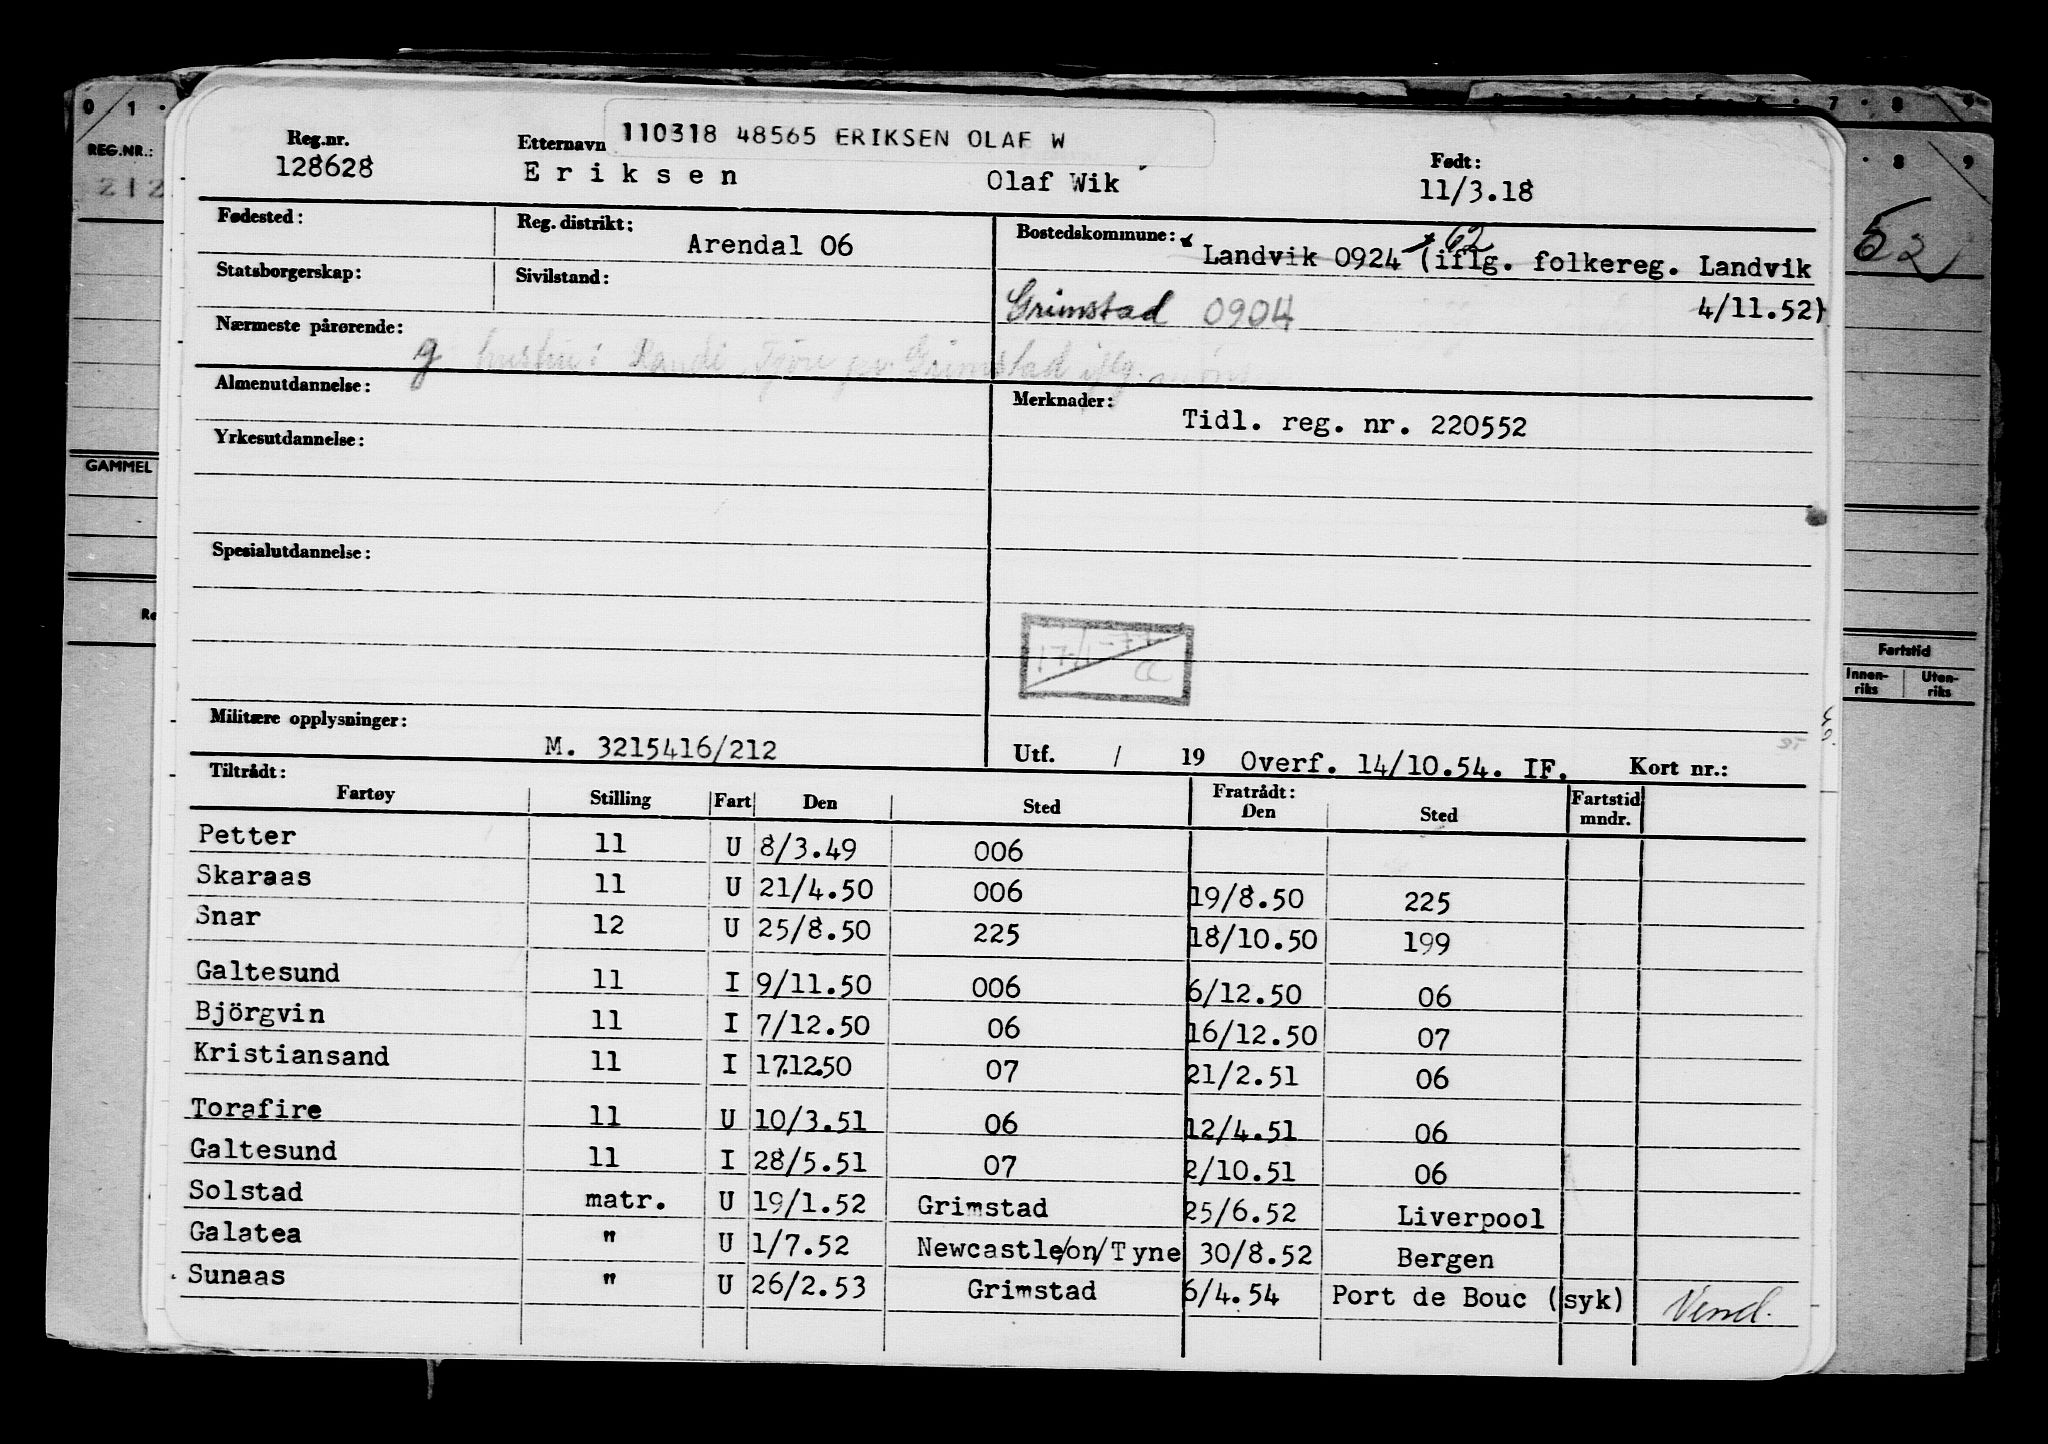 110318 48565 ERIKSEN OLAF W
Reg.nr. Etternavn Født:
128628 Eriksen Olaf Wik 11/3.18
Fødested: Reg. distrikt: Arendal 06 Bostedskommune: Landvik 0924 62 (iflg. folkereg. Landvik
Statsborgerskap: Sivilstand: Grimstad 0904 4/11.52)
Nærmeste pårørende:
g hustru: Randi Grimstad iflg.
Almenutdannelse: Merknader: Tidl. reg. nr. 220552
Yrkesutdannelse:
Spesialutdannelse:
Militære opplysninger: M. 3215416/212 Utf. / 19 Overf. 14/10.54. IF. Kort nr.:
Tiltrådt: Fratrådt:
Fartøy Stilling Fart Den Sted Den Sted Fartstid mndr.
Petter 11 U 8/3.49 006
Skaraas 11 U 21/4.50 006 19/8.50 225
Snar 12 U 25/8.50 225 18/10.50 199
Galtesund 11 I 9/11.50 006 6/12.50 06
Björgvin 11 I 7/12.50 06 16/12.50 07
Kristiansand 11 I 17.12.50 07 21/2.51 06
Torafire 11 U 10/3.51 06 12/4.51 06
Galtesund 11 I 28/5.51 07 2/10.51 06
Solstad matr. U 19/1.52 Grimstad 25/6.52 Liverpool
Galatea " U 1/7.52 Newcastle/on/Tyne 30/8.52 Bergen
Sunaas " U 26/2.53 Grimstad 6/4.54 Port de Bouc (syk) Vend.
REG.NR.:
212
GAMMEL
52
Fartstid
Innen-riks Uten-riks